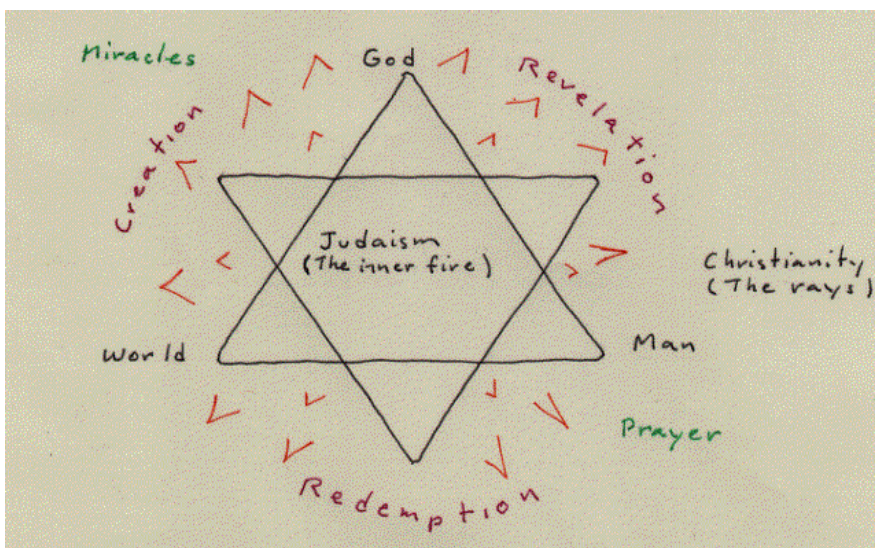 God
Miracles
Revelation
Creation
Judaism
(The inner fire)
Christianity
(The rays)
World
Man
Prayer
Redemption